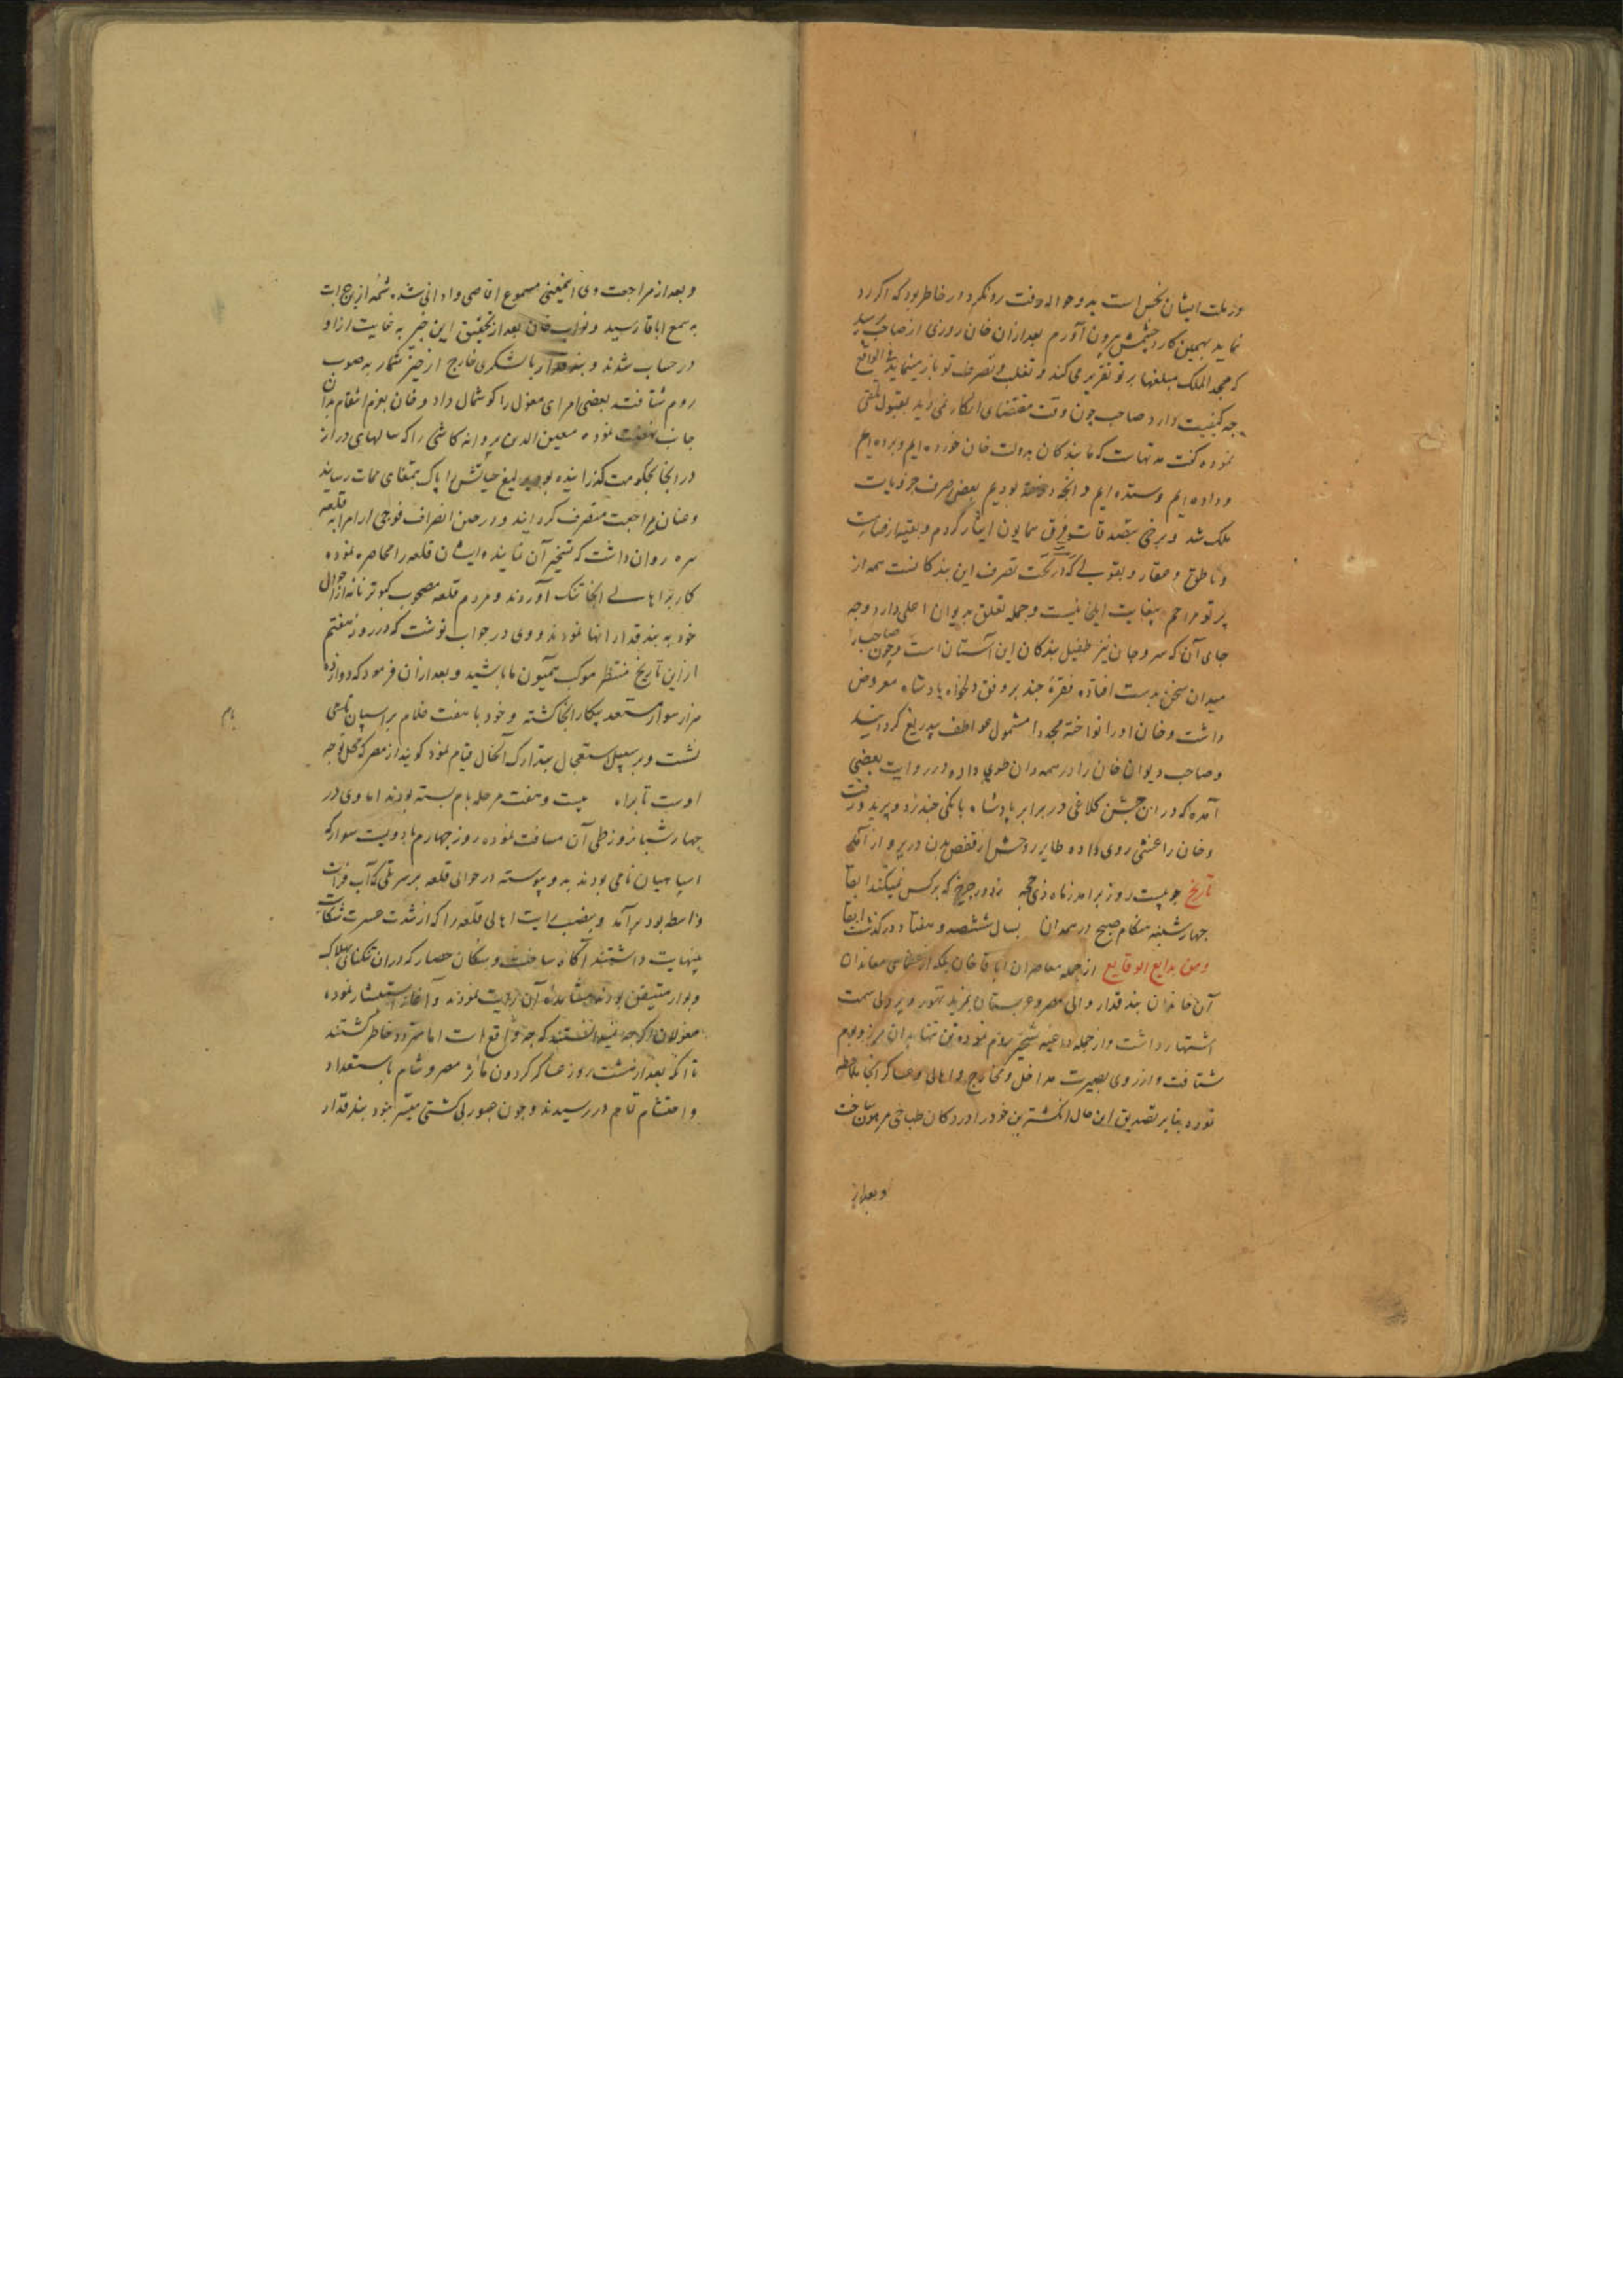 در ملت ایشان نجس است بدو حواله وقت رد نکرد در خاطر بود که اگر رد
نماید بهمین کارد چشمش بیرون آورم بعد ازان خان روزی از صاحب پرسید
که مجد الملک مبلغها بر تو تقریر می کند و تغلب و تصرف تو باز مینماید فی الواقع
چه کیفیت دارد صاحب چون وقت مقتضای انکار نمی دید بقبول تلقی
نموده گفت مدتهاست که ما بندگان بدولت خان خورده ایم و برده ایم
و داده ایم و ستده ایم و آنچه اندوخته بودیم بعضی صرف جزویات
ملک شد و برخی بتصدقات فرق همایون ایثار کردم و بقیه از صامت
و ناطق و عقار و یعقوبی که در تحت تصرف این بندگانست همه از
پرتو مراحم بیغایت ایلخانیست و جمله تعلق بدیوان اعلی دارد و چه
جای آن که سر و جان نیز طفیل بندگان این آستان است و چون صاحب را
میدان سخن بدست افتاده فقرهٔ چند بر وفق دلخواه پادشاه معروض
داشت و خان او را نواخته مجددا مشمول عواطف بیدریغ گردانید
و صاحب دیوان خان را در همدان طوی داده در روایت بعضی
آمده که در این جشن کلاغی در برابر پادشاه بانکی چند زد و پرید و رفت
و خان را غشی روی داده طایر روحش از قفص بدن در پرواز آمد
تاریخ چو بیست روز برآمد ز ماه ذی حجه ز دور چرخ که بر کس نمیکند ابقا
چهارشنبه هنگام صبح در همدان بسال ششصد و هفتاد درگذشت ابقا
و من بدایع الوقایع از جمله معاصران اباقا خان بلکه از عظمای معاندان
آن خاندان بندقدار والی مصر و عربستان بمزید تهور و پردلی سمت
اشتهار داشت و از جمله داعیه تسخیر روم نموده تن تنها بدان مرز و بوم
شتافت و از روی بصیرت مداخل و مخارج و اهالی و عساکر آنجا ملاحظه
نموده بنابر تصدیق این حال انگشترین خود را در دکان طباخی مرهون ساخت
و بعد از
و بعد از مراجعت وی اینمعنی مسموع اقاصی و ادانی شد شمهٔ ازین
به سمع اباقا رسید و نواب خان بعد از تحقیق این خبر به غایت ازاو
در حساب شدند و بندقدار با لشکری خارج از حیز شمار به صوب
روم شتافت بعضی امرای مغول را گوشمال داد و خان بعزم انتقام بدان
جانب نهضت نموده معین الدین پروانه کاشی را که سالهای دراز
در انجا بحکومت گذرانیده بود یرلیغ حیاتش را پاک بتمغای ممات رسانید
و عنان مراجعت منصرف گردانید و در حین انصراف فوجی از امرا به قلعه
بیره روان داشت که تسخیر آن نمایند ایشان قلعه را محاصره نموده
کار بر اهالی انجا تنک آوردند و مردم قلعه مصحوب کبوتر نامه از احوال
خود به بندقدار انها نمودند و وی در جواب نوشت که در روز هفتم
از این تاریخ منتظر موکب همیون ما باشید و بعد ازان فرمود که دوازده
هزار سوار مستعد پیکار انجا گشته و خود با هفت غلام بر اسپان تامی
نشست و بر سبیل استعجال بتدارک آنحال قیام نمود گویند از مصر که محل توجه
اوست تا بیره بیست و هفت مرحله یام بسته بودند اما وی در
چهار شبانروز طی آن مسافت نموده روز چهارم با دویست سوار که
اسپاهیان نامی بودند بدو پیوسته در حوالی قلعه بر سر تلی که آب فرات
واسطه بود برآمد و بنصب رایت اهالی قلعه را که از شدت عسرت شکایت
بینهایت داشتند آگاه ساخت و سکان حصار که دران تنکنای هلاک
و بوار متیقن بودند بمشاهدهٔ آن رایت نمودند و آغاز استبشار نموده
مغولان اگر چه نمیدانستند که چه واقع است اما متردد خاطر گشتند
تا انکه بعد از هشت روز عساکر گردون مآثر مصر و شام باستعداد
و احتشام تمام در رسیدند و چون عبور بی کشتی میسر نبود بندقدار
یام